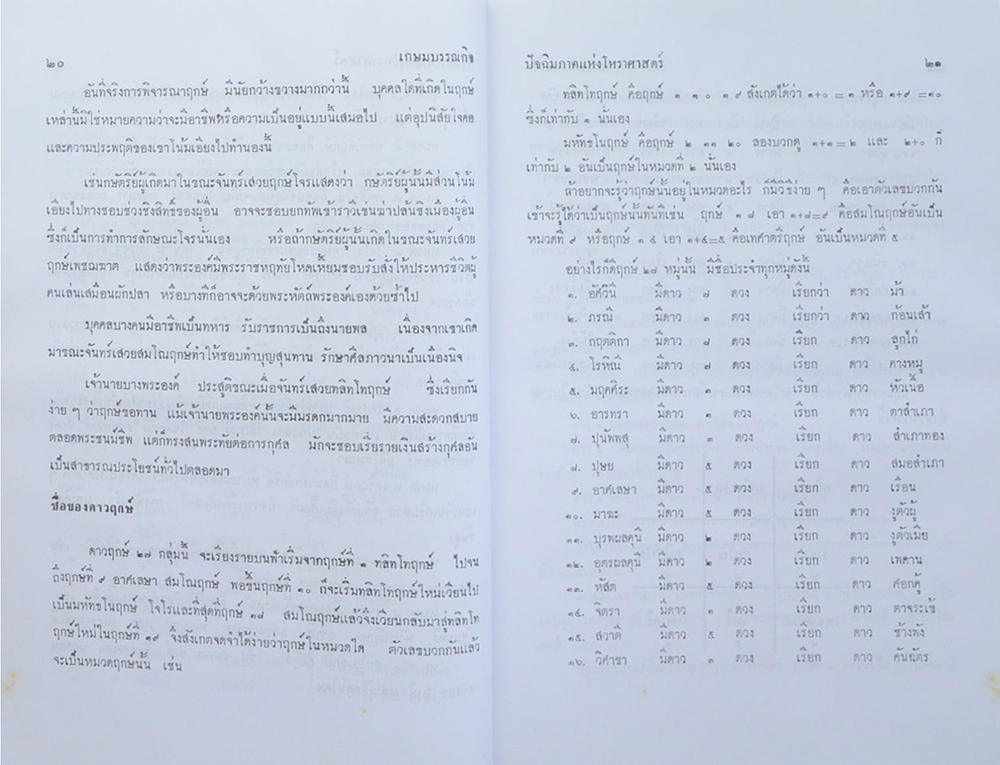 ๒๐ เกษมบรรณกิจ
อันที่จริงการพิจารณาฤกษ์ มีนัยกว้างขวางมากกว่านี้ บุคคลใดที่เกิดในฤกษ์
เหล่านี้มิใช่หมายความว่าจะมีอาชีพหรือความเป็นอยู่แบบนี้เสมอไป แต่อุปนิสัยใจคอ
และความประพฤติของเขาโน้มเอียงไปทำนองนี้
เช่นกษัตริย์ผู้เกิดมาในขณะจันทร์เสวยฤกษ์โจรแสดงว่า กษัตริย์ผู้นั้นมีส่วนโน้ม
เอียงไปทางชอบช่วงชิงสิทธิ์ของผู้อื่น อาจจะชอบยกทัพเข้าราวีเข่นฆ่าปล้นชิงเมืองผู้อื่น
ซึ่งก็เป็นการทำการลักษณะโจรนั่นเอง หรือถ้ากษัตริย์ผู้นั้นเกิดในขณะจันทร์เสวย
ฤกษ์เพชฌฆาต แสดงว่าพระองค์มีพระราชหฤทัยโหดเหี้ยมชอบรับสั่งให้ประหารชีวิตผู้
คนเล่นเสมือนผักปลา หรือบางทีก็อาจจะด้วยพระหัตถ์พระองค์เองด้วยซ้ำไป
บุคคลบางคนมีอาชีพเป็นทหาร รับราชการเป็นถึงนายพล เนื่องจากเขาเกิด
มาขณะจันทร์เสวยสมโณฤกษ์ทำให้ชอบทำบุญสุนทาน รักษาศีลภาวนาเป็นเนืองนิจ
เจ้านายบางพระองค์ ประสูติขณะเมื่อจันทร์เสวยทลิทโทฤกษ์ ซึ่งเรียกกัน
ง่าย ๆ ว่าฤกษ์ขอทาน แม้เจ้านายพระองค์นั้นจะมีมรดกมากมาย มีความสะดวกสบาย
ตลอดพระชนม์ชีพ แต่ก็ทรงสนพระทัยต่อการกุศล มักจะชอบเรี่ยรายเงินสร้างกุศลอัน
เป็นสาธารณประโยชน์ทั่วไปตลอดมา
ชื่อของดาวฤกษ์
ดาวฤกษ์ ๒๗ กลุ่มนี้ จะเรียงรายบนฟ้าเริ่มจากฤกษ์ที่ ๑ ทลิทโทฤกษ์ ไปจน
ถึงฤกษ์ที่ ๙ อาศเลษา สมโณฤกษ์ พอขึ้นฤกษ์ที่ ๑๐ ก็จะเริ่มทลิทโทฤกษ์ใหม่เวียนไป
เป็นมหัทธโนฤกษ์ โจโรและที่สุดที่ฤกษ์ ๑๘ สมโณฤกษ์แล้วจึงเวียนกลับมาสู่ทลิทโท
ฤกษ์ใหม่ในฤกษ์ที่ ๑๙ จึงสังเกตจดจำได้ง่ายว่าฤกษ์ในหมวดใด ตัวเลขบวกกันแล้ว
จะเป็นหมวดฤกษ์นั้น เช่น
ปัจฉิมภาคแห่งโหราศาสตร์ ๒๑
ทลิทโทฤกษ์ คือฤกษ์ ๑ ๑๐ ๑๙ สังเกตได้ว่า ๑+๐ = ๑ หรือ ๑+๙ = ๑๐
ซึ่งก็เท่ากับ ๑ นั่นเอง
มหัทธโนฤกษ์ คือฤกษ์ ๒ ๑๑ ๒๐ ลองบวกดู ๑+๑ = ๒ และ ๒+๐ ก็
เท่ากับ ๒ อันเป็นฤกษ์ในหมวดที่ ๒ นั่นเอง
ถ้าอยากจะรู้ว่าฤกษ์นั้นอยู่ในหมวดอะไร ก็มีวิธีง่าย ๆ คือเอาตัวเลขบวกกัน
เข้าจะรู้ได้ว่าเป็นฤกษ์นั้นทันทีเช่น ฤกษ์ ๑๘ เอา ๑+๘=๙ คือสมโณฤกษ์อันเป็น
หมวดที่ ๙ หรือฤกษ์ ๑๔ เอา ๑+๔=๕ คือเทศาตรีฤกษ์ อันเป็นหมวดที่ ๕
อย่างไรก็ดีฤกษ์ ๒๗ หมู่นั้น มีชื่อประจำทุกหมู่ดังนี้
๑. อัศวินี มีดาว ๗ ดวง เรียกว่า ดาว ม้า
๒. ภรณี มีดาว ๓ ดวง เรียกว่า ดาว ก้อนเส้า
๓. กฤตติกา มีดาว ๘ ดวง เรียก ดาว ลูกไก่
๔. โรหิณี มีดาว ๗ ดวง เรียก ดาว คางหมู
๕. มฤคศิระ มีดาว ๓ ดวง เรียก ดาว หัวเนื้อ
๖. อารทรา มีดาว ๑ ดวง เรียก ดาว ตาสำเภา
๗. ปุนัพพสุ มีดาว ๓ ดวง เรียก ดาว สำเภาทอง
๘. ปุษย มีดาว ๕ ดวง เรียก ดาว สมอสำเภา
๙. อาศเลษา มีดาว ๕ ดวง เรียก ดาว เรือน
๑๐. มาฆะ มีดาว ๕ ดวง เรียก ดาว งูตัวผู้
๑๑. บุรพผลคุนี มีดาว ๒ ดวง เรียก ดาว งูตัวเมีย
๑๒. อุตรผลคุนี มีดาว ๒ ดวง เรียก ดาว เพดาน
๑๓. หัสต มีดาว ๕ ดวง เรียก ดาว ศอกคู้
๑๔. จิตรา มีดาว ๑ ดวง เรียก ดาว ตาจระเข้
๑๕. สวาติ มีดาว ๕ ดวง เรียก ดาว ช้างพัง
๑๖. วิศาขา มีดาว ๓ ดวง เรียก ดาว คันฉัตร